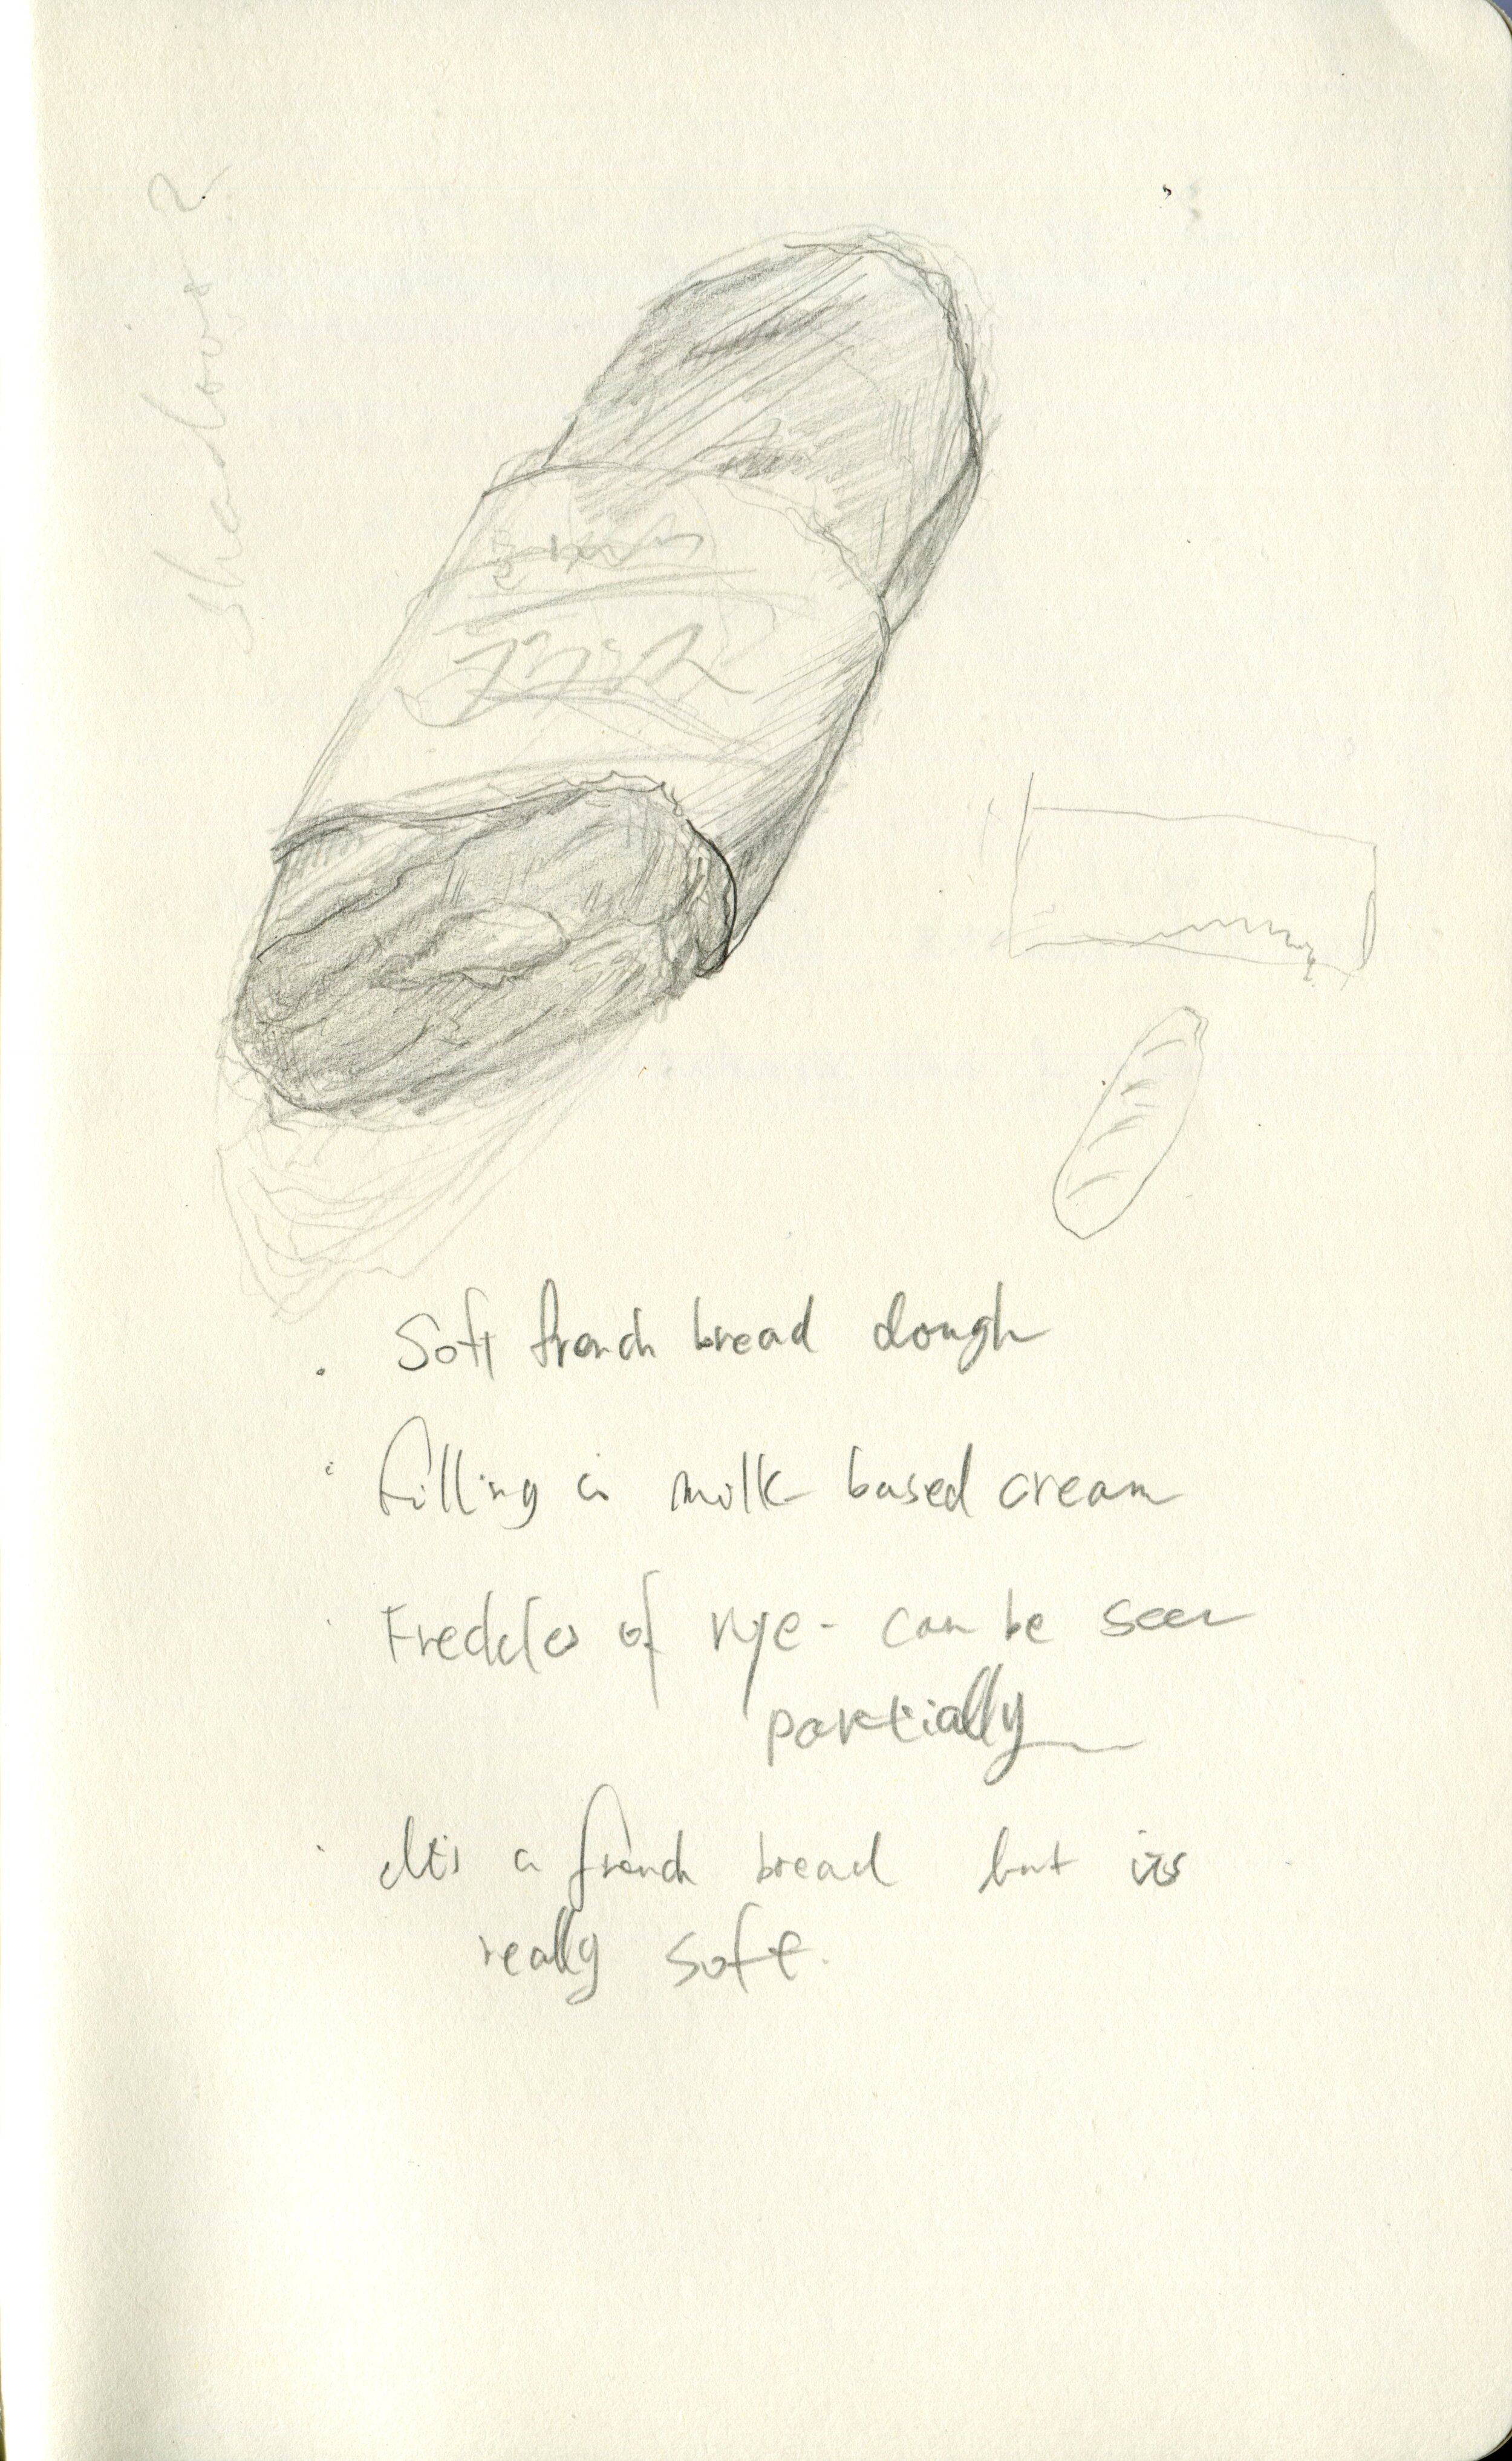 フランス
. Soft french bread dough
. filling is milk based cream
. Freckles of rye - can be seen
partially
. It's a french bread but its
really soft.